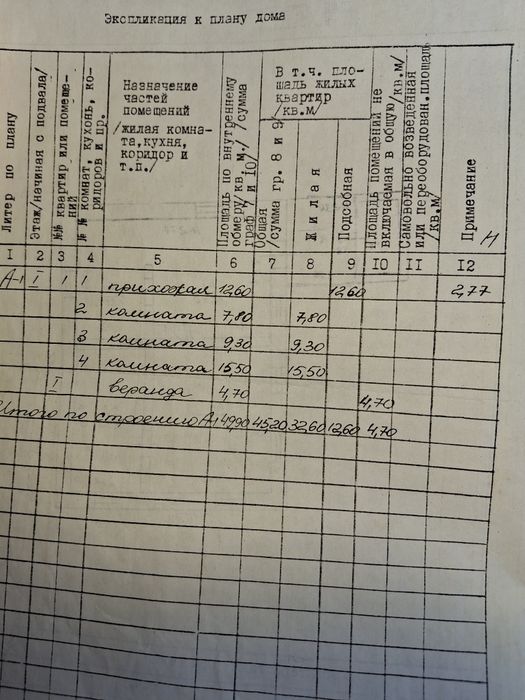 Экспликация к плану дома
Литер по плану
Этаж/начиная с подвала/
№№ квартир или помеще-
ний
№ № комнат, кухонь, ко-
ридоров и пр.
Назначение
частей
помещений
/жилая комна-
та,кухня,
коридор и
т.п./
Площадь по внутреннему
обмеру/кв.м./ /сумма
граф 7 и 10/
В т.ч. пло-
щадь жилых
квартир
/кв.м/
Общая
/сумма гр. 8 и 9/
Жилая
Подсобная
Площадь помещений не
включаемая в общую/кв.м/
Самовольно возведенная
или переоборудован.площадь
/кв.м/
Примечание
H
1 2 3 4 5 6 7 8 9 10 11 12
А-1 I 1 1 прихожая 12,60 12,60 2,77
2 комната 7,80 7,80
3 комната 9,30 9,30
4 комната 15,50 15,50
I веранда 4,70 4,70
Итого по строению А1 49,90 45,20 32,60 12,60 4,70